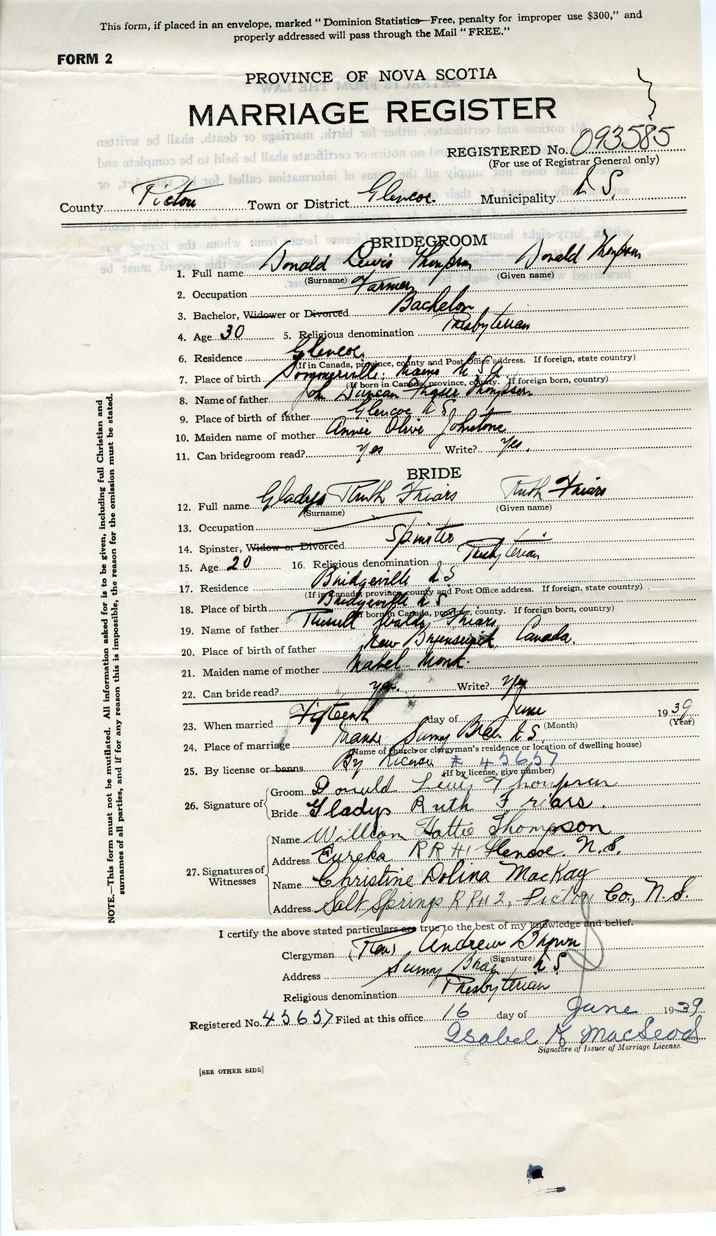 This form, if placed in an envelope, marked "Dominion Statistics—Free, penalty for improper use $300," and
properly addressed will pass through the Mail "FREE."
FORM 2
PROVINCE OF NOVA SCOTIA
MARRIAGE REGISTER
REGISTERED No. 093585
(For use of Registrar General only)
County Pictou Town or District Glencoe Municipality N. S.
BRIDEGROOM
1. Full name Donald Lewis Thompson Donald Thompson
(Surname) (Given name)
2. Occupation Farmer
3. Bachelor, Widower or Divorced Bachelor
4. Age 30 5. Religious denomination Presbyterian
6. Residence Glencoe
(If in Canada, province, county and Post Office address. If foreign, state country)
7. Place of birth U S A
(If born in Canada, province, county. If foreign born, country)
8. Name of father Duncan Thompson
9. Place of birth of father Glencoe N S
10. Maiden name of mother Annie Olive Johnstone
11. Can bridegroom read? yes Write? yes.
BRIDE
12. Full name Gladys Ruth Friars Ruth Friars
(Surname) (Given name)
13. Occupation
14. Spinster, Widow or Divorced Spinster
15. Age 20 16. Religious denomination Presbyterian
17. Residence Bridgeville N S
(If in Canada, province, county and Post Office address. If foreign, state country)
18. Place of birth Bridgeville N S
(If born in Canada, province, county. If foreign born, country)
19. Name of father Russell Friars
20. Place of birth of father New Brunswick Canada.
21. Maiden name of mother Mabel Monk.
22. Can bride read? yes. Write? Yes
23. When married Fifteenth day of June 1939
(Month) (Year)
24. Place of marriage Manse Sunny Brae N S
(Name of church or clergyman's residence or location of dwelling house)
25. By license or banns By License # 45657
(If by license, give number)
26. Signature of Groom Donald Lewis Thompson
Bride Gladys Ruth Friars.
27. Signatures of Witnesses
Name William Hattie Thompson
Address Eureka R R #1 Glencoe, N. S.
Name Christine Dolina MacKay
Address Salt Springs R R #2, Pictou Co., N. S.
I certify the above stated particulars are true to the best of my knowledge and belief.
Clergyman (Rev) Andrew Brown
(Signature)
Address Sunny Brae N S
Religious denomination Presbyterian
Registered No. 45657 Filed at this office 16 day of June 1939
Isabel K MacLeod
Signature of Issuer of Marriage License.
[SEE OTHER SIDE]
NOTE.—This form must not be mutilated. All information asked for is to be given, including full Christian and
surnames of all parties, and if for any reason this is impossible, the reason for the omission must be stated.